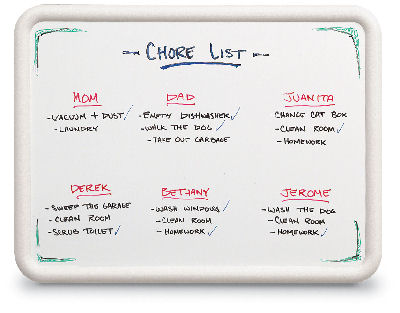 CHORE LIST
MOM
- VACUUM + DUST ✓
- LAUNDRY
DAD
- EMPTY DISHWASHER ✓
- WALK THE DOG ✓
- TAKE OUT GARBAGE
JUANITA
CHANGE CAT BOX
- CLEAN ROOM ✓
- HOMEWORK
DEREK
- SWEEP THE GARAGE
- CLEAN ROOM
- SCRUB TOILET ✓
BETHANY
- WASH WINDOWS ✓
- CLEAN ROOM
- HOMEWORK ✓
JEROME
- WASH THE DOG
- CLEAN ROOM
- HOMEWORK ✓